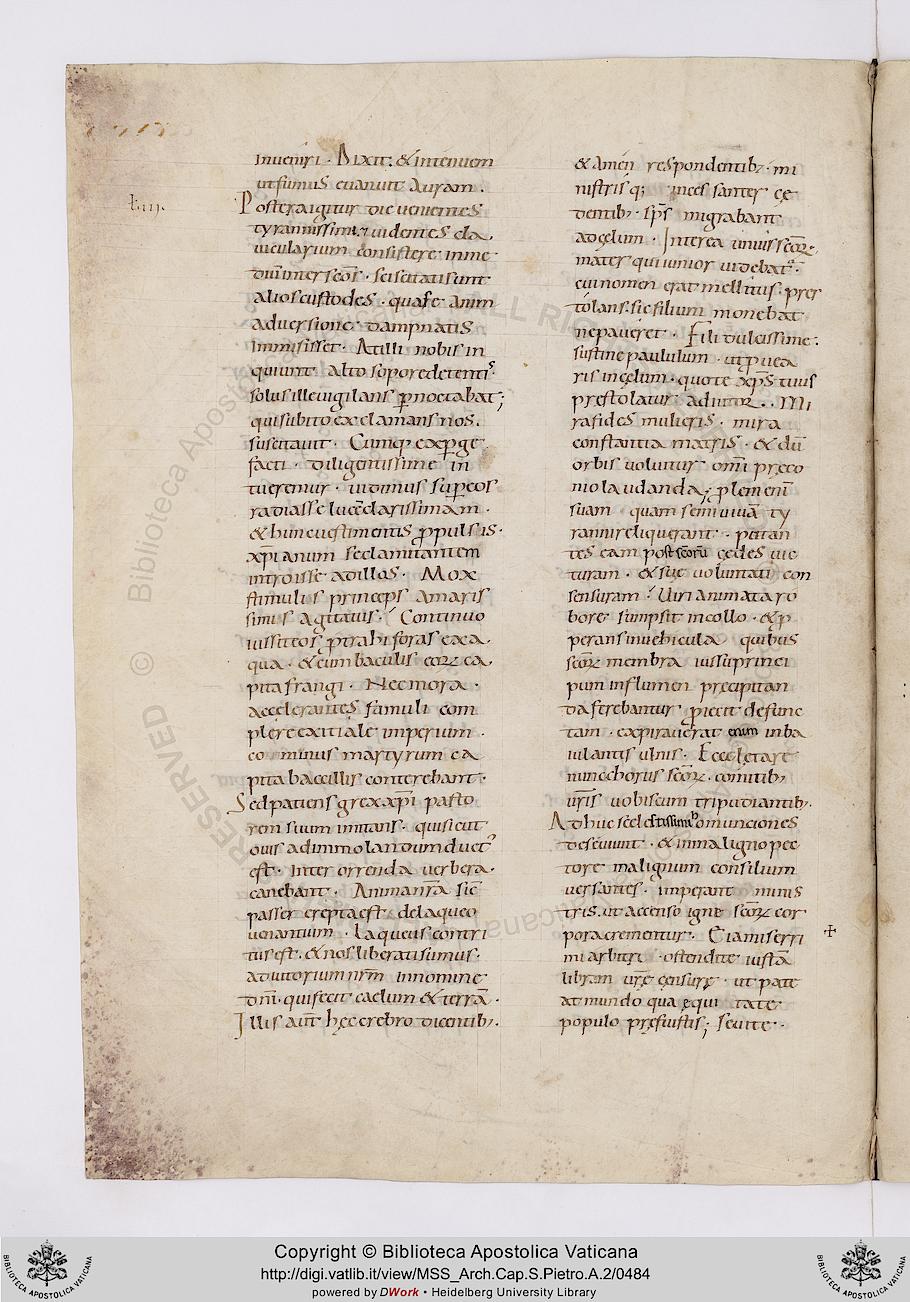 inveniri · Dixit: & in tenuem
ut fumus evanuit auram .
t iiii.
Postera igitur die venientes
tyrannissimi, videntes cla
vicularium consistere inme
diū inter scōs · sciscitati sunt
alios custodes · quare anim
adversione dampnatis
immisisset · At illi nobis in
quiunt alto sopore detentis
solus ille vigilans p̱noctabat;
qui subito exclamans nos
suscitavit · Cumq; exp̱ge
facti · diligentissime in
tueremur · vidimus sup̱ eos
radiasse lucē clarissimam ·
& hunc vestimentis p̱pulsis ·
xp̄ianum se clamitantem
introisse ad illos · Mox
stimulis princeps amaris
simis agitatus · Continuo
iussit eos p̱trahi foras ex a
qua · & cum baculis eorꝝ ca
pita frangi · Nec mora ·
accelerantes famuli com
plere exitiale imperium ·
cominus martyrum ca
pita bacillis conterebant ·
Sed patiens grex xp̄i pasto
rem suum imitans · qui sicut
ovis ad immolandum duct'
est · inter orrenda verbera
canebant · Anima nr̄a sic
passer erepta est de laqueo
venantium · Laqueus contri
tus est · & nos liberati sumus ·
adiutorium nr̄m in nomine
dn̄i · qui fecit caelum & terrā ·
Illis aut̄ hęc crebro dicentib; ·
& amen respondentib; · mi
nistrisq; incessanter cę
dentib; · sp̄s migrabant
ad cęlum · Interea unius scōrꝝ
mater qui iunior videbat' ·
cui nomen erat mellitus · prẹs
tolans · sic filium monebat
ne paveret · Fili dulcissime ·
sustine paululum · ut p̱vea
ris in cęlum · quo te xp̄s tuus
prestolatur adiutor · · Mi
ra fides mulieris · mira
constantia matris · & dū
orbis volvitur omī pręco
nio laudanda; plem enī
suam quam semivivā ty
ranni reliquerant · putan
tes eam post scōrū cędes vic
turam · & suę voluntati con
sensuram · Viri animata ro
bore sumpsit in collo · & p̱
perans in vehicula quibus
scōrꝝ membra iussu princi
pum in flumen precipitan
da ferebantur p̱iecit defunc
tam · expiraverat enim in ba
iulantis ulnis · Ecce lętare
nunc chorus scōrꝝ · comitib;
vr̄is vobiscum tripudiantib; ·
Adhuc scelestissimi homunciones
desęviunt · & in maligno pec
tore malignum consilium
versantes · imperant minis
tris · ut accenso igne scōrꝝ cor
pora crementur · Eia miserri
mi arbitri · ostendite iustā
libram vr̄ę censurę · ut pate
at mundo qua ęquitate
populo pręfuistis; sevite ·
+
Copyright © Biblioteca Apostolica Vaticana
http://digi.vatlib.it/view/MSS_Arch.Cap.S.Pietro.A.2/0484
powered by DWork • Heidelberg University Library